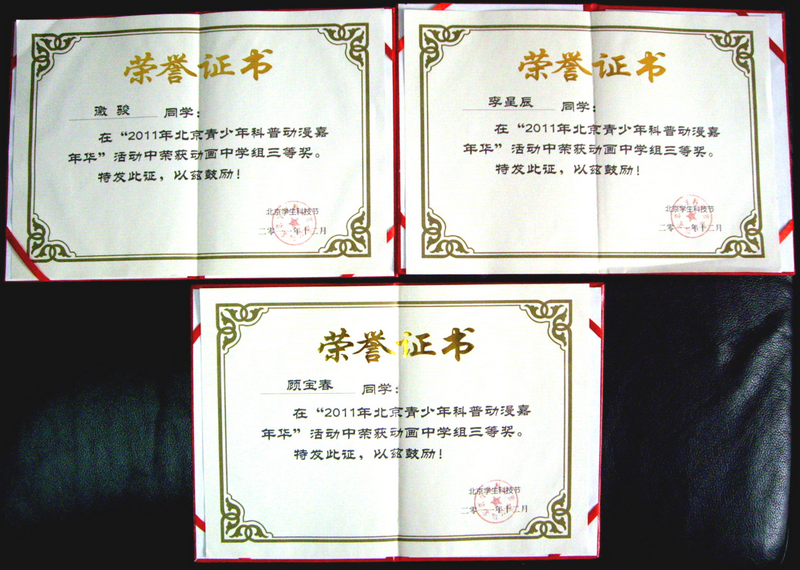 荣誉证书
激 骏 同学：
在“2011年北京青少年科普动漫嘉
年华”活动中荣获动画中学组三等奖。
特发此证，以兹鼓励！
北京学生科技节
二〇一一年十二月
荣誉证书
李星辰 同学：
在“2011年北京青少年科普动漫嘉
年华”活动中荣获动画中学组三等奖。
特发此证，以兹鼓励！
北京学生科技节
二〇一一年十二月
荣誉证书
顾宝春 同学：
在“2011年北京青少年科普动漫嘉
年华”活动中荣获动画中学组三等奖。
特发此证，以兹鼓励！
北京学生科技节
二〇一一年十二月